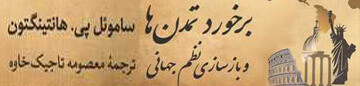 برخورد تمدن‌ها
و بازسازی نظم جهانی
ساموئل پی. هانتینگتون
ترجمهٔ معصومه تاجیک‌خاوه